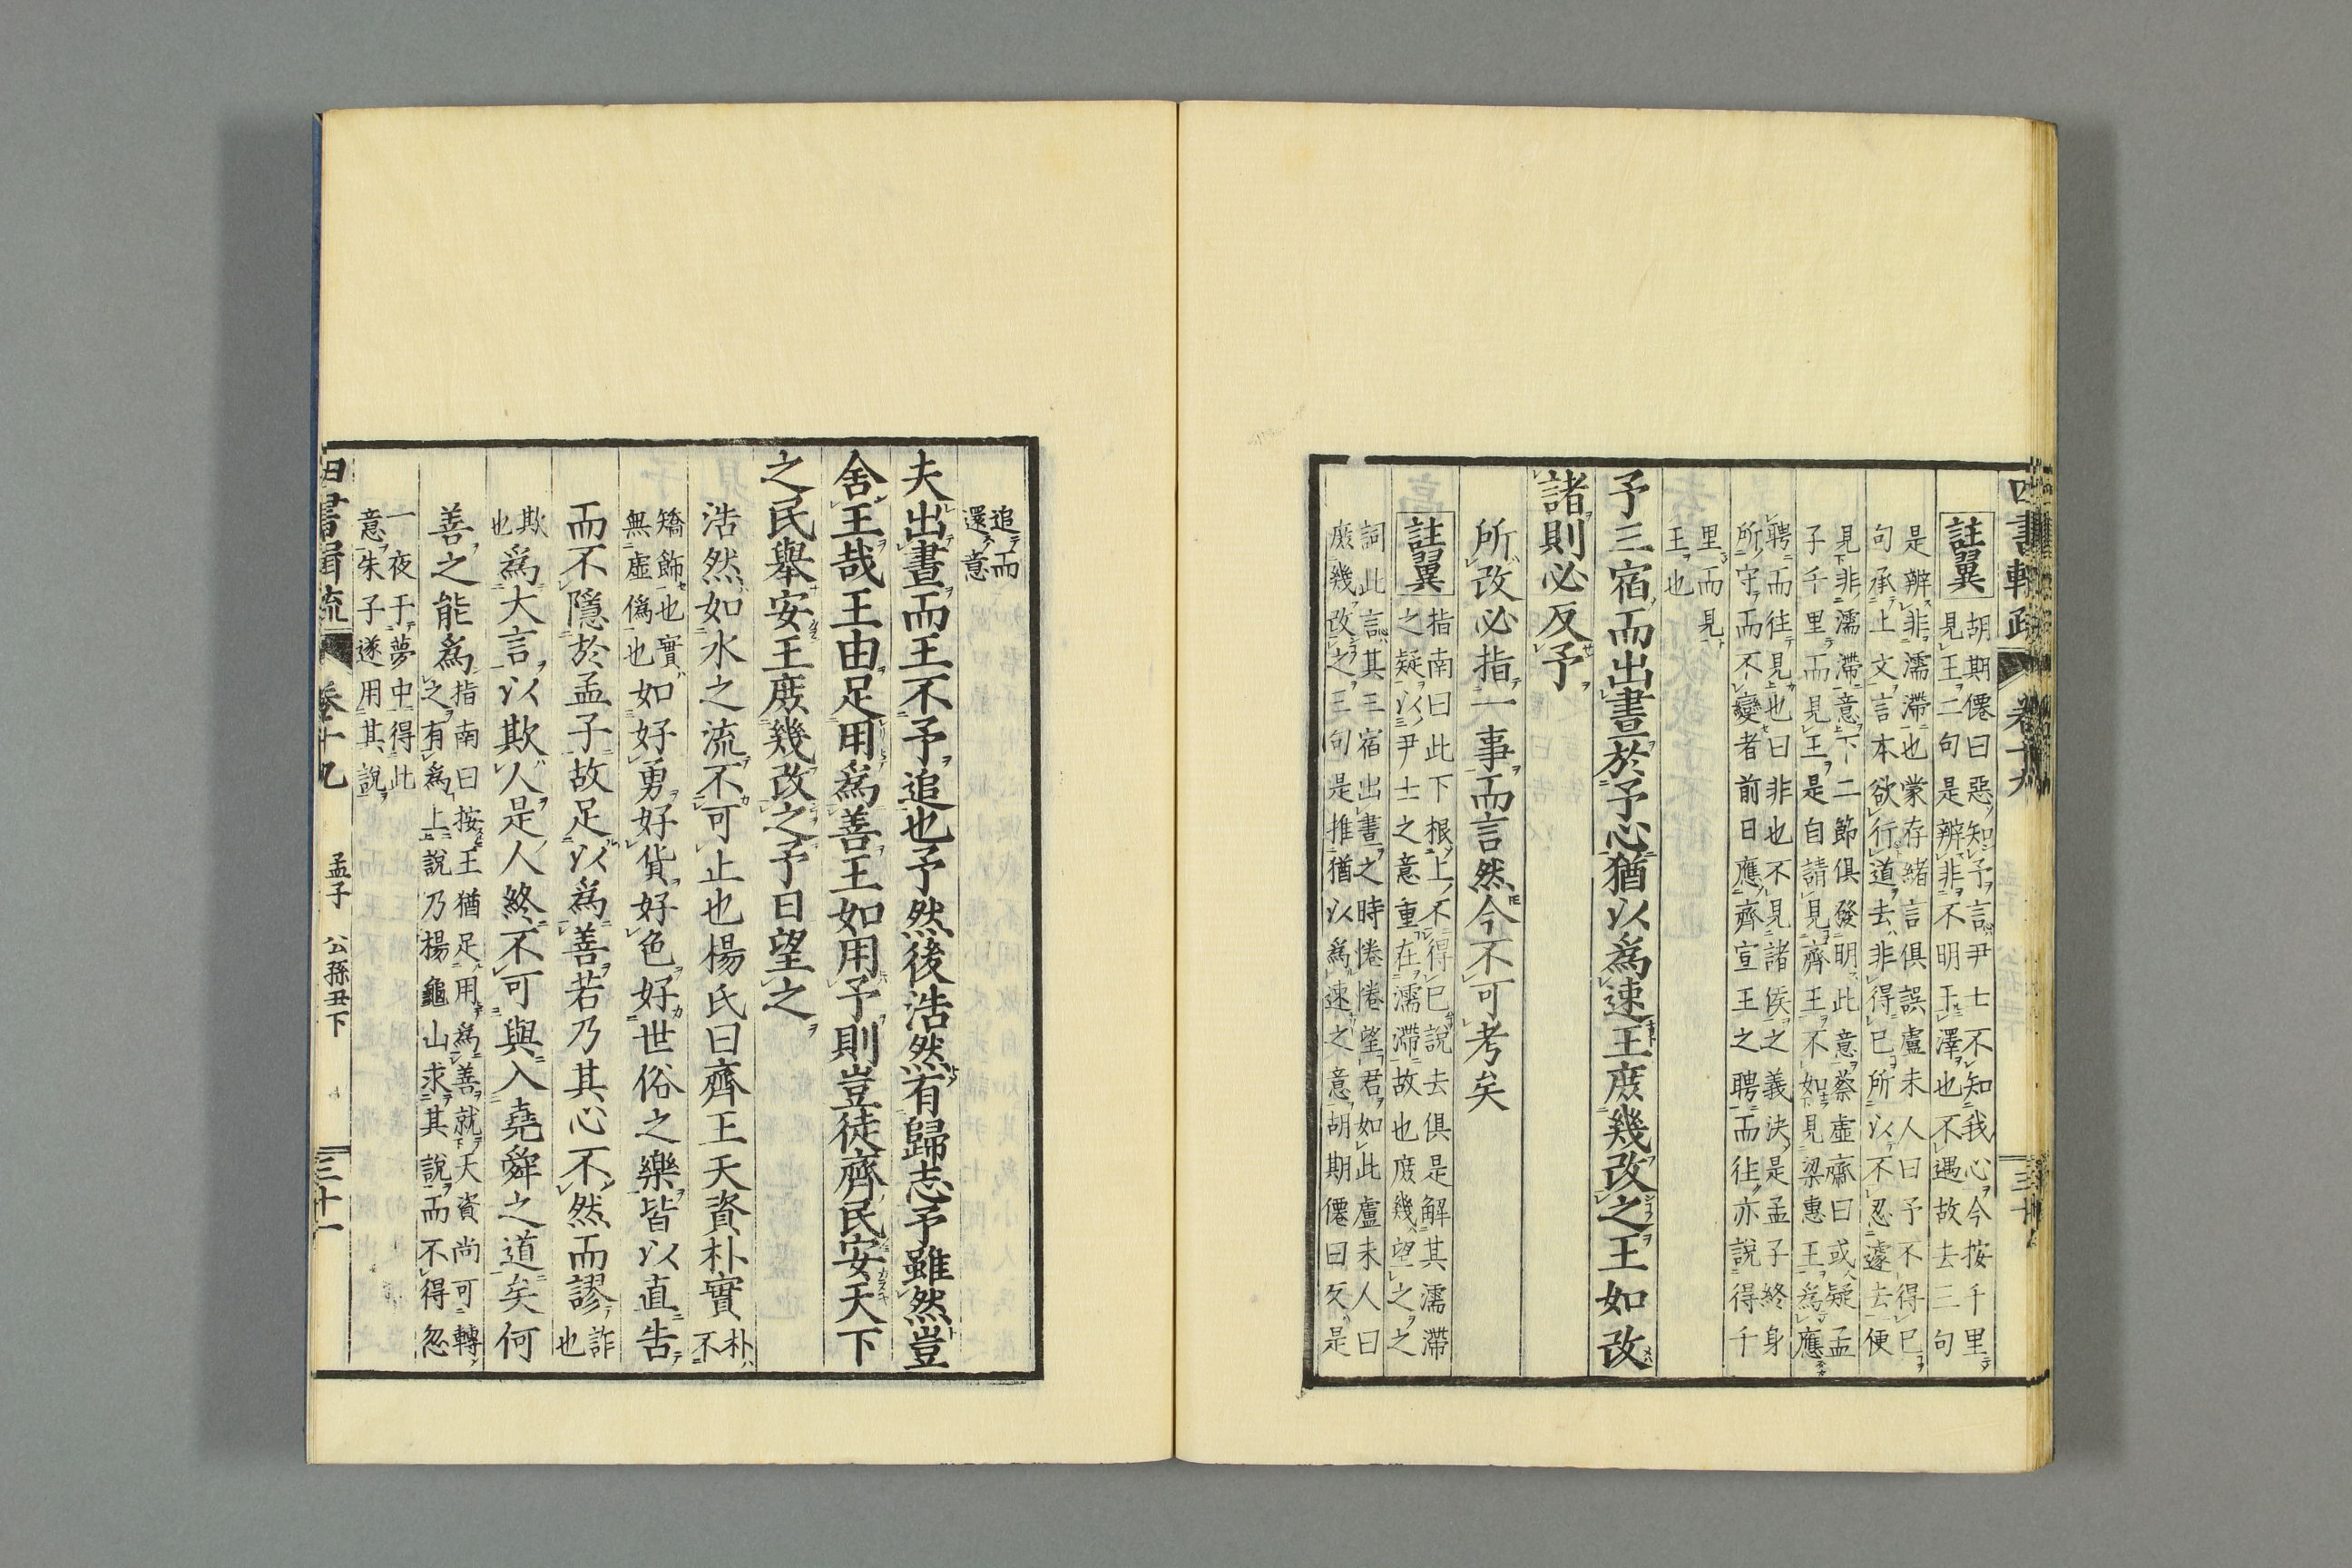 四書輯疏 卷十九 三十
註翼 胡期僊曰惡知予言尹士不知我心今按千里
見王二句是辨非不明于澤也不遇故去三句
是辨非濡滯也蒙存緒言俱誤盧未人曰予不得已
句承上文言本欲行道去非得已所以不忍遽去便
見非濡滯意下二節俱發明此意蔡虛齋曰或疑孟
子千里而見王是自請見齊王不如見梁惠王爲應
聘而往見也曰非也不見諸侯之義決是孟子終身
所守而不變者前日應齊宣王之聘而往亦說得千
里而見
王也
予三宿而出晝於予心猶以爲速王庶幾改之王如改
諸則必反予
所改必指一事而言然今不可考矣
註翼 指南曰此下根上不得已說去俱是解其濡滯
之疑以尹士之意重在濡滯故也庶幾望之之
詞此言其三宿出晝之時惓惓望君如此盧未人曰
庶幾改之三句是推猶以爲速之意胡期僊曰反是
追而
還意
夫出晝而王不予追也予然後浩然有歸志予雖然豈
舍王哉王由足用爲善王如用予則豈徒齊民安天下
之民舉安王庶幾改之予日望之
浩然如水之流不可止也楊氏曰齊王天資朴實 朴不
矯飾也實
無虛僞也 如好勇好貨好色好世俗之樂皆以直告
而不隱於孟子故足以爲善若乃其心不然而謬 詐也
欺也 爲大言以欺人是人終不可與入堯舜之道矣何
善之能爲 指南曰按王猶足用爲善就天資尚可轉
之有爲上說乃楊龜山求其說而不得忽
一夜于夢中得此
意朱子遂用其說
四書輯疏 卷十九 孟子 公孫丑下 三十一